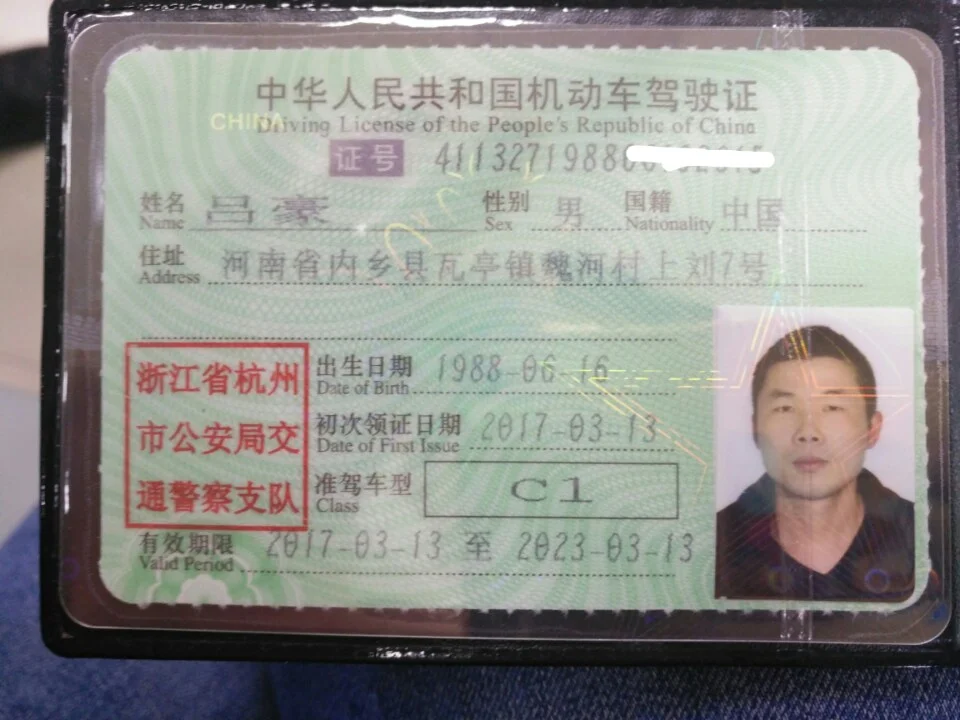 中华人民共和国机动车驾驶证
CHINA Driving License of the People's Republic of China
证号
姓名 吕豪 性别 男 国籍 中国
Name Sex Nationality
住址 河南省内乡县瓦亭镇魏河村上刘7号
Address
浙江省杭州
市公安局交
通警察支队
出生日期 1988-06-16
Date of Birth
初次领证日期 2017-03-13
Date of First Issue
准驾车型 C1
Class
有效期限 2017-03-13 至 2023-03-13
Valid Period